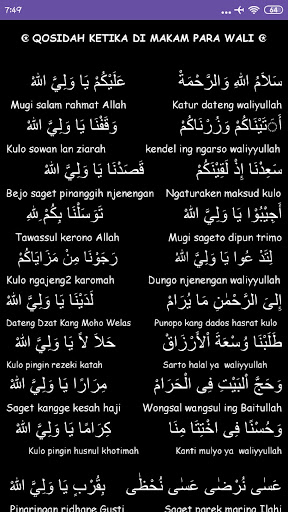 7:49
QOSIDAH KETIKA DI MAKAM PARA WALI
سَلَامُ اللهِ وَالرَّحْمَةْ عَلَيْكُمْ يَا وَلِيَّ اللهْ
Mugi salam rahmat Allah Katur dateng waliyullah
أَتَيْنَاكُمْ وَزُرْنَاكُمْ وَقَفْنَا يَا وَلِيَّ اللهْ
Kulo sowan lan ziarah kendel ing ngarso waliyullah
سَعِدْنَا إِذْ لَقِيْنَكُمْ قَصَدْنَا يَا وَلِيَّ اللهْ
Bejo saget pinanggih njenengan Ngaturaken maksud kulo
أَجِيْبُوْا يَا وَلِيَّ اللهْ تَوَسَّلْنَا بِكُمْ لِلهِ
Tawassul kerono Allah Mugi sageto dipun trimo
لِتَدْ عُوا يَا وَلِيَّ اللهْ رَجَوْنَا مِنْ مَزَايَاكُمْ
Kulo ngajeng2 karomah Dungo njenengan waliyullah
إِلَى الرَّحْمٰنِ مَا يُرَامْ لَدَيْنَا يَا وَلِيَّ اللهْ
Dateng Dzat Kang Moho Welas Punopo kang dados hasrat kulo
طَلَبْنَا وُسْعَةَ الْأَرْزَاقْ حَلَالًا يَا وَلِيَّ اللهْ
Kulo pingin rezeki katah Sarto halal ya waliyullah
وَحَجَّ الْبَيْتِ فِى الْحَرَامْ مِرَارًا يَا وَلِيَّ اللهْ
Saget kangge kesah haji Wongsal wangsul ing Baitullah
وَحُسْنًا فِى اخْتِتَا مِنَا كِرَامًا يَا وَلِيَّ اللهْ
Kulo pingin husnul khotimah Kanti mulyo ya waliyullah
عَسٰى نُرْضٰى عَسٰى نُحْظٰى بِقُرْبٍ يَا وَلِيَّ اللهْ
Pinaringan ridhane Gusti Saget parek maring Ilahi